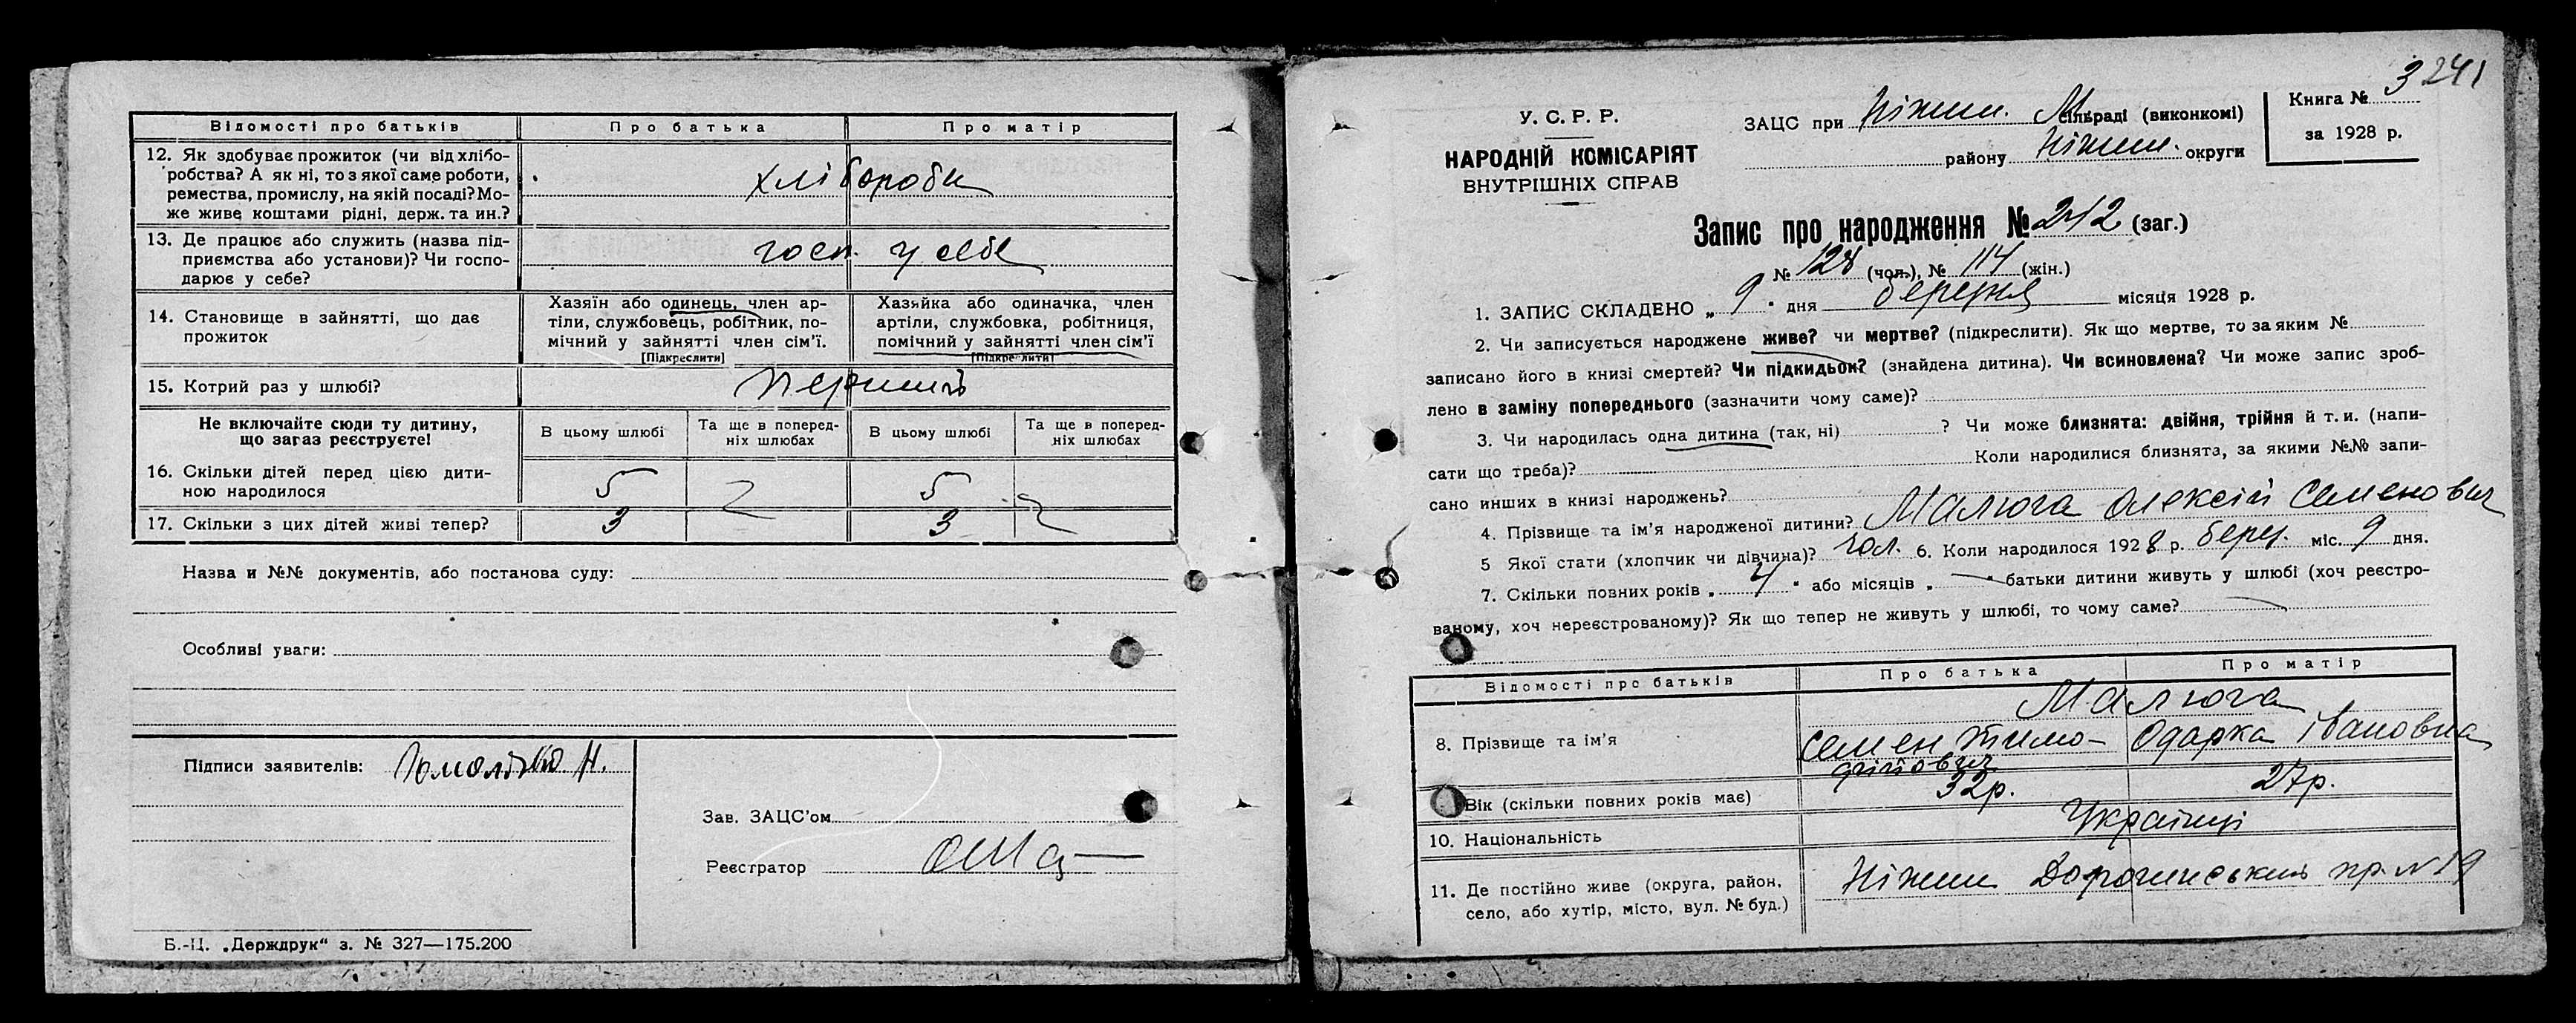 Відомості про батьків
Про батька
Про матір
12. Як здобуває прожиток (чи від хлібо-
робства? А як ні, то з якої саме роботи,
ремества, промислу, на якій посаді? Мо-
же живе коштами рідні, держ. та ин.?
хлібороби
13. Де працює або служить (назва під-
приємства або установи)? Чи госпо-
дарює у себе?
госп. у себе
14. Становище в зайнятті, що дає
прожиток
Хазяїн або одинець, член ар-
тіли, службовець, робітник, по-
мічний у зайнятті член сім'ї.
[Підкреслити]
Хазяйка або одиначка, член
артіли, службовка, робітниця,
помічний у зайнятті член сім'ї
[Підкреслити]
15. Котрий раз у шлюбі?
перший
Не включайте сюди ту дитину,
що зараз реєструєте!
В цьому шлюбі
Та ще в поперед-
ніх шлюбах
В цьому шлюбі
Та ще в поперед-
ніх шлюбах
16. Скільки дітей перед цією дити-
ною народилося
5 5
17. Скільки з цих дітей живі тепер?
3 3
Назва и №№ документів, або постанова суду:
Особливі уваги:
Підписи заявителів:
Зав. ЗАЦС'ом
Реєстратор
Б.-Ц. „Держдрук“ з. № 327—175.200
3241
У. С. Р. Р.
НАРОДНІЙ КОМІСАРІЯТ
ВНУТРІШНІХ СПРАВ
ЗАЦС при Ніжин. М. сільраді (виконкомі)
району Ніжин. округи
Книга № 3
за 1928 р.
Запис про народження № 242 (заг.)
№ 128 (чол.), № 114 (жін.)
1. ЗАПИС СКЛАДЕНО „ 9 “ дня березня місяця 1928 р.
2. Чи записується народжене живе? чи мертве? (підкреслити). Як що мертве, то за яким №
записано його в книзі смертей? Чи підкидьок? (знайдена дитина). Чи всиновлена? Чи може запис зроб-
лено в заміну попереднього (зазначити чому саме)?
3. Чи народилась одна дитина (так, ні) ? Чи може близнята: двійня, трійня й т. и. (напи-
сати що треба)? Коли народилися близнята, за якими №№ запи-
сано инших в книзі народжень?
4. Прізвище та ім'я народженої дитини? Малюга Олексій Семенович
5 Якої стати (хлопчик чи дівчина)? чол. 6. Коли народилося 1928 р. берез. міс. 9 дня.
7. Скільки повних років „ 4 “ або місяців „ — “ батьки дитини живуть у шлюбі (хоч реєстро-
ваному, хоч нереєстрованому)? Як що тепер не живуть у шлюбі, то чому саме?
Відомості про батьків
Про батька
Про матір
Малюга
8. Прізвище та ім'я
Семен Тимо-
фійович
Одарка Івановна
Вік (скільки повних років має)
32р.
27р.
10. Національність
Українці
11. Де постійно живе (округа, район,
село, або хутір, місто, вул. № буд.)
Ніжин Дорогинський пр. № 19